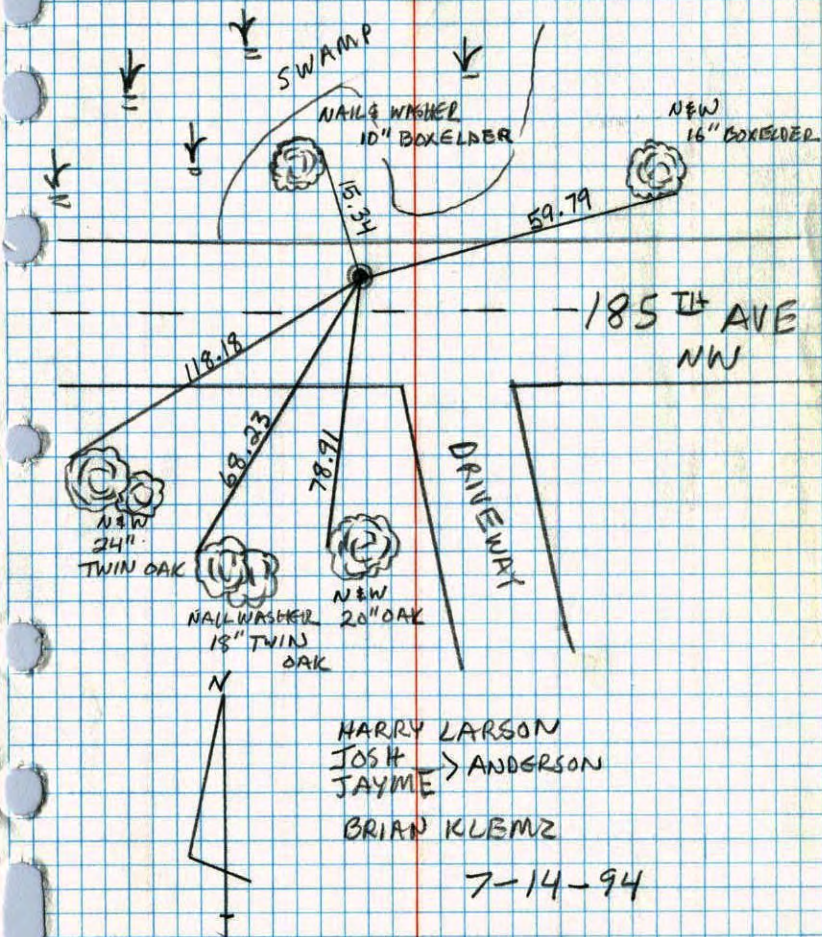 SWAMP
NAIL & WASHER
10" BOXELDER
N&W
16" BOXELDER
15.34
59.79
185TH AVE
NW
118.18
68.23
78.91
DRIVEWAY
N&W
24"
TWIN OAK
NAIL WASHER
18" TWIN
OAK
N&W
20" OAK
N
HARRY LARSON
JOSH
JAYME > ANDERSON
BRIAN KLEMZ
7-14-94